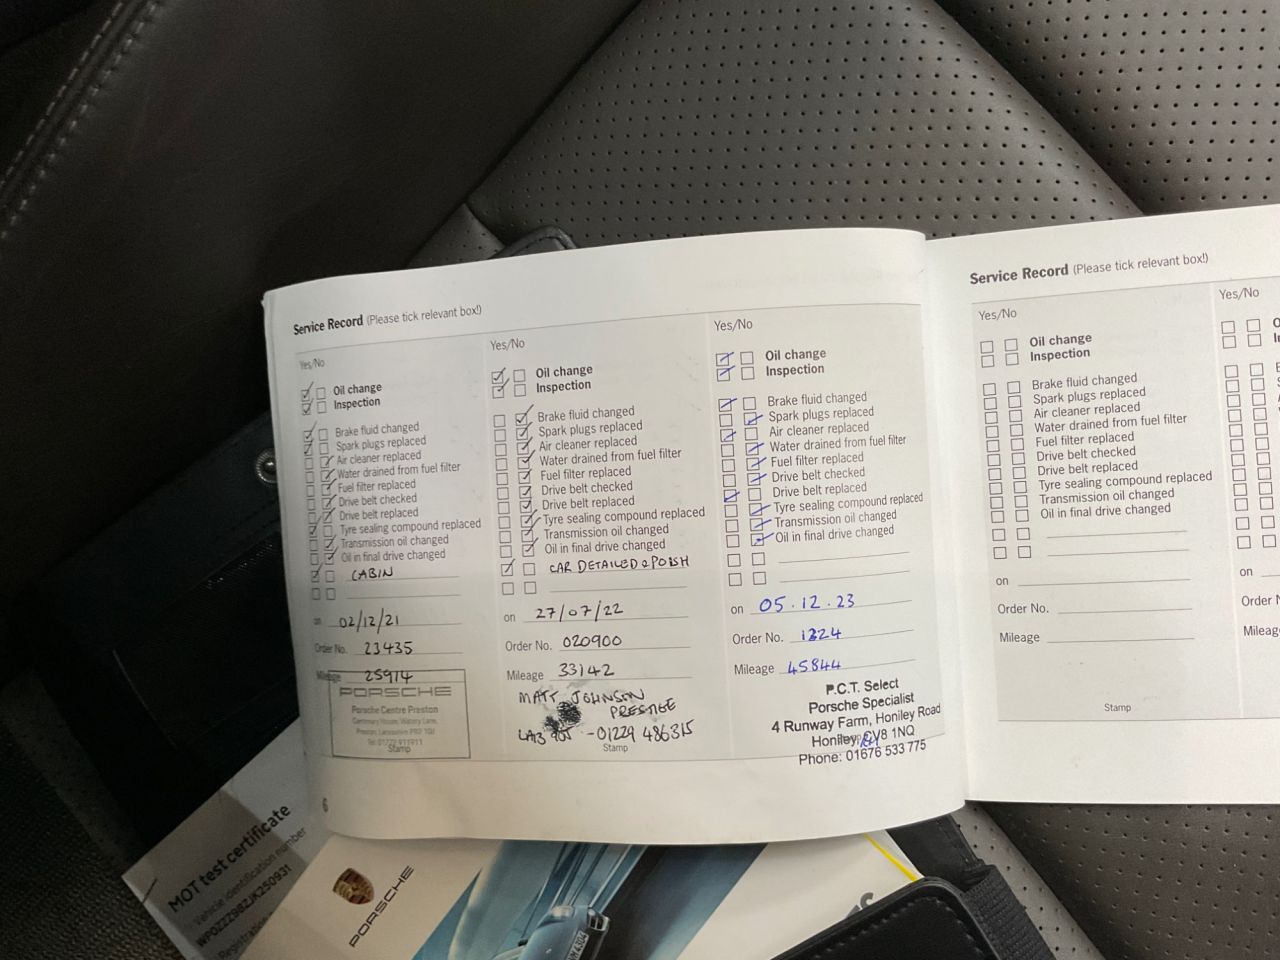 Service Record (Please tick relevant box!)
Yes/No
Oil change
Inspection
Brake fluid changed
Spark plugs replaced
Air cleaner replaced
Water drained from fuel filter
Fuel filter replaced
Drive belt checked
Drive belt replaced
Tyre sealing compound replaced
Transmission oil changed
Oil in final drive changed
CABIN
on 02/12/21
Order No. 23435
Mileage 25914
PORSCHE
Porsche Centre Preston
Centenary House, Watery Lane,
Preston, Lancashire PR2 1QJ
Tel: 01772 911911
Stamp
6
Yes/No
Oil change
Inspection
Brake fluid changed
Spark plugs replaced
Air cleaner replaced
Water drained from fuel filter
Fuel filter replaced
Drive belt checked
Drive belt replaced
Tyre sealing compound replaced
Transmission oil changed
Oil in final drive changed
CAR DETAILED & POLISH
on 27/07/22
Order No. 020900
Mileage 33142
MATT JOHNSON
PRESTIGE
LA13 - 01229 486315
Stamp
Yes/No
Oil change
Inspection
Brake fluid changed
Spark plugs replaced
Air cleaner replaced
Water drained from fuel filter
Fuel filter replaced
Drive belt checked
Drive belt replaced
Tyre sealing compound replaced
Transmission oil changed
Oil in final drive changed
on 05.12.23
Order No. 1324
Mileage 45844
P.C.T. Select
Porsche Specialist
4 Runway Farm, Honiley Road
Honiley, CV8 1NQ
Phone: 01676 533 775
Service Record (Please tick relevant box!)
Yes/No
Oil change
Inspection
Brake fluid changed
Spark plugs replaced
Air cleaner replaced
Water drained from fuel filter
Fuel filter replaced
Drive belt checked
Drive belt replaced
Tyre sealing compound replaced
Transmission oil changed
Oil in final drive changed
on
Order No.
Mileage
Stamp
Yes/No
on
Order
Mileag
MOT test certificate
Vehicle identification number
WP0ZZZ98ZJK250931
Registration
PORSCHE